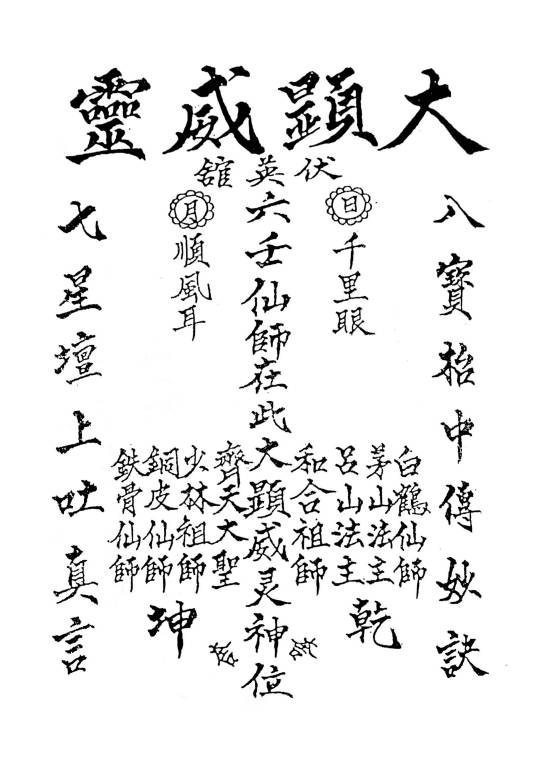 大顕威靈
伏英舘
八寶枱中傳妙訣
日
千里眼
白鶴仙師
茅山法主
呂山法主
和合祖師
乾
六壬仙師在此大顕威灵神位
月
順風耳
齊天大聖
少林祖師
銅皮仙師
鉄骨仙師
坤
七星壇上吐真言